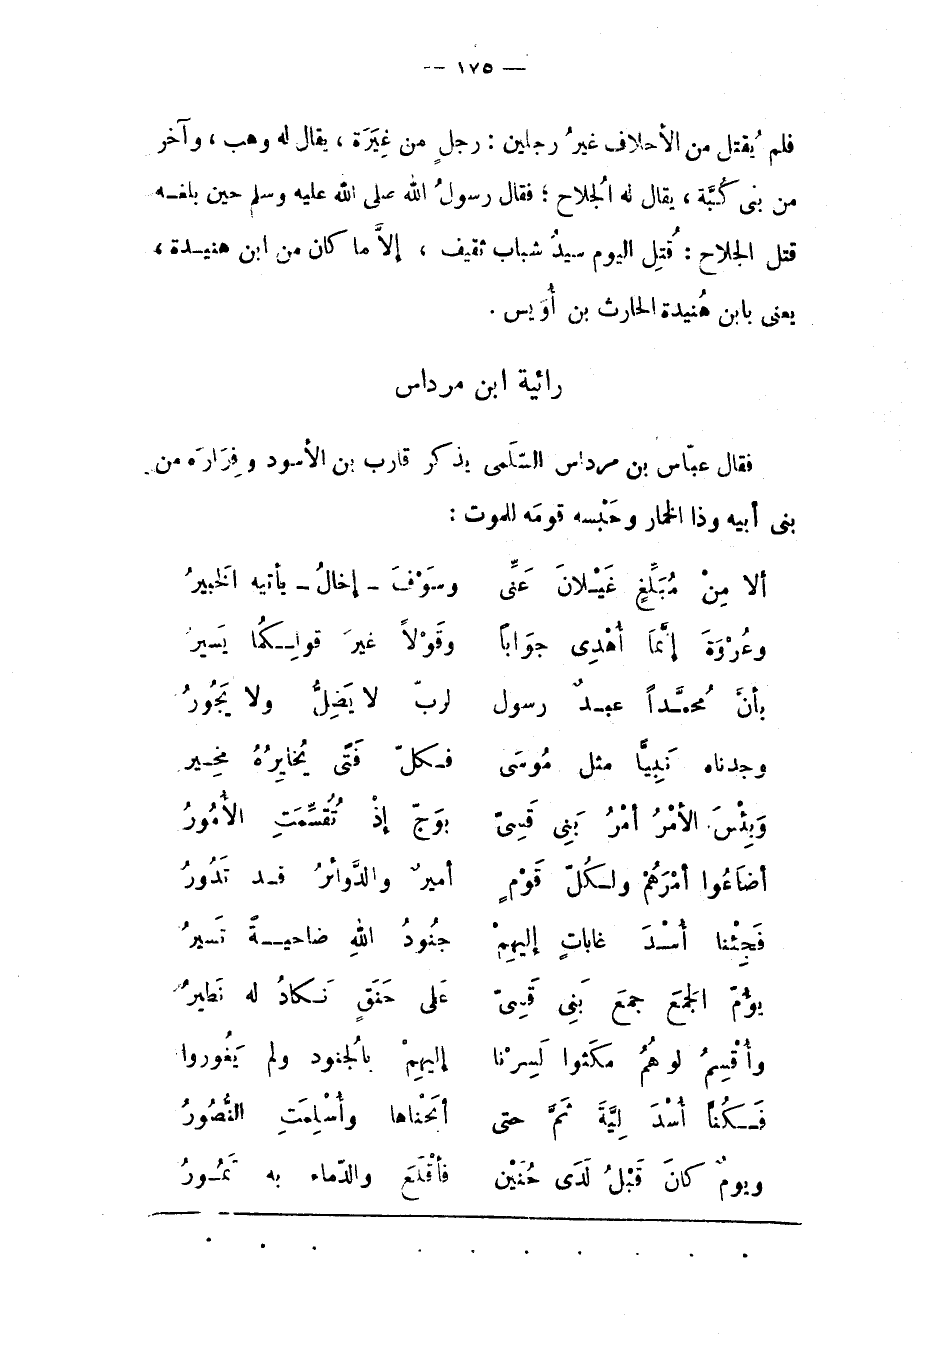 — ١٧٥ —
فلم يُقتل من الأحلاف غيرُ رجلين : رجلٍ من غِيَرَة ، يقال له وهب ، وآخر
من بنى كُبَّة ، يقال له الُجلاح ؛ فقال رسولُ الله صلى الله عليه وسلم حين بلغـه
قتل الجلاح : قُتِل اليوم سيدُ شباب ثقيف ، إلاَّ ما كان من ابن هنيـدة ،
يعنى بابن هُنيدة الحارث بن أُوَيس .
رائية ابن مرداس
فقال عبّاس بن مرداس السّلَمى يذكر قارب بن الأسود وفِرَارَه من
بنى أبيه وذا الخمار وحَبْسه قومَه للموت :
ألا مِنْ مُبَلِّغٍ غَيْـلانَ عَنِّى وسَوْفَ ـ إخالُ ـ يأتيه الَخبيرُ
وعُرْوَةَ إنَّمَا أُهْدِى جوَاباً وقَوْلاً غيرَ قولِـكُمَا يَسيرُ
بأنَّ مُحمَّـداً عبـدٌ رسول لربّ لا يَضِلُّ ولا يَجُورُ
وجدناه نَبِيًّا مثل مُوسَى فـكلّ فَتًى يُخايِرُهُ مَخِـير
وَبِئْسَ الأمْرُ أمْرُ بَنِى قَسِىّ بوَجّ إذْ تُقُسِّمَتِ الأمُورُ
أضَاعُوا أمْرَهُمْ ولـكُلّ قَوْمٍ أميرٌ والدَّوائرُ قـد تَدُورُ
فَجِئْنا أُسْـدَ غاباتٍ إليهِمْ جُنُودُ اللهِ ضاحيـةً تَسيرُ
يَؤُمّ الَجمْعَ جمعَ بَنِى قَسِىّ عَلى حَنَقٍ نَـكادُ له نَطيرُ
وأُقْسِمُ لو هُمُ مكَثوا لَسِرْنا إليهِمْ بالُجنود ولم يَغُوروا
فَـكُنَّا أُسْدَ لِيَّةَ ثَمَّ حتى أبَحْناها وأُسْلِمَتِ النُّصُورُ
ويومٌ كانَ قَبْلُ لَدَى حُنَيْن فأقْلَعَ والدّماء به تَمُـورُ